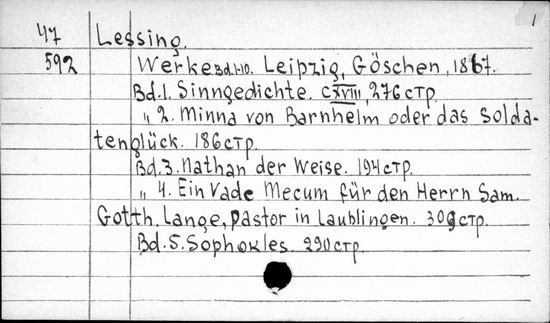 1
47 Lessing.
592 Werke Bd.1-10. Leipzig, Göschen, 1867.
Bd.1. Sinngedichte. CXVIII, 276 стр.
„ 2. Minna von Barnhelm oder das Solda-
tenglück. 186 стр.
Bd.3. Nathan der Weise. 194 стр.
„ 4. Ein Vade Mecum für den Herrn Sam.
Gotth. Lange, Pastor in Laublingen. 309 стр.
Bd.5. Sophokles. 290 стр.